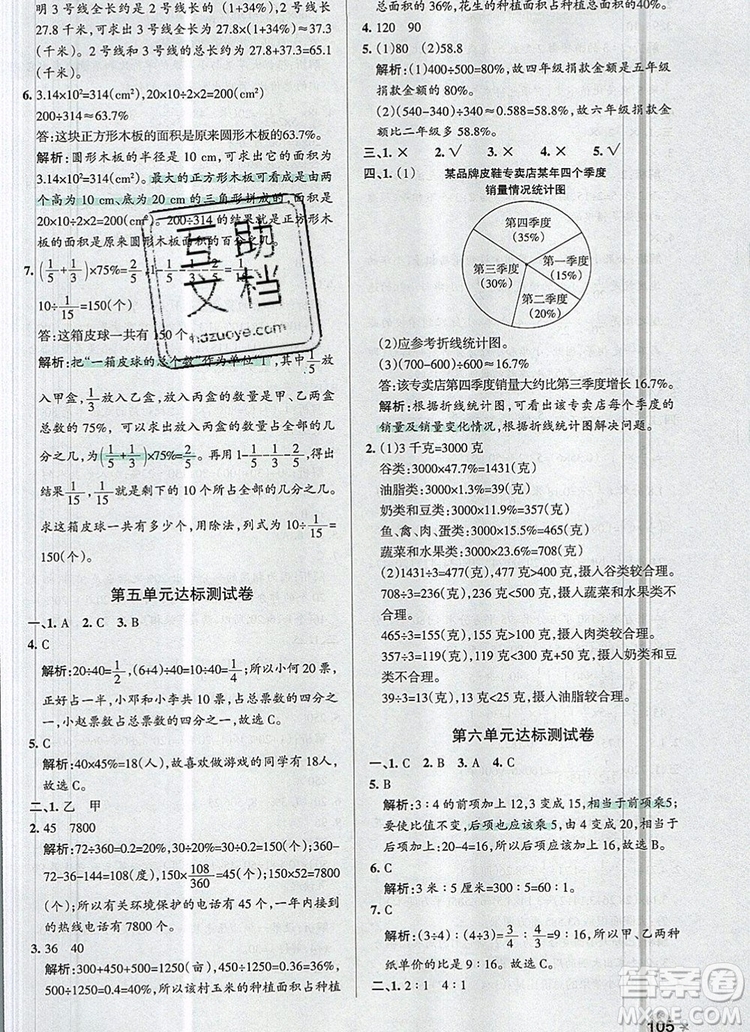 明 3 号线全长约是 2 号线全长的(1+34%),故列式为
27.8 千米。明 2 号线和 3 号线的总长约为 27.8+37.3=65.1
(千米)。
6. 3.14×10²=314(cm²),20×10÷2×2=200(cm²)
200÷314≈63.7%
答:这块正方形木板的面积是原来圆形木板的63.7%。
解析:圆形木板的半径是 10 cm,可以求出它的面积为
3.14×10²=314(cm²)。最大的正方形木板可看成是由两
个高为 10 cm、底为 20 cm 的三角形拼成的,面积是
20×10÷2×2=200(cm²)。200÷314
板的面积是原来圆形木板面积的百分之几。
7. (1/5+1/3)×75%=2/5
10÷1/15=150(个)
答:这箱皮球一共有 150 个。
解析:把“一箱皮球的总个数”作为单位“1”,其中1/5放
入甲盒,1/3放入乙盒,放入两盒的数量是甲、乙、丙盒
总数的 75%,可以求出放入两盒的数量占全部的几分
之几,(1/5+1/3)×75%=2/5。再用 1-1/5-1/3-2/5=1/15,得出
结果1/15就是剩下的 10 个所占全部的几分之几。
求这箱皮球一共有多少个,用除法,列式为 10÷1/15=
150(个)。
第五单元达标测试卷
一、1. A 2. C 3. B
4. C
解析:20÷40=1/2,(6+4)÷40=10÷40=1/4;所以小何 20 票,
正好占一半,小邓和小李共 10 票,占总票数的四分之
一,小赵票数占总票数的四分之一,故选 C。
5. C
解析:40×45%=18(人),故喜欢做游戏的同学有 18 人。
故选 C。
二、1. 乙 甲
2. 45 7800
解析:72÷360=0.2=20%,30÷20%=150(个);360-
60-72-36-144=108,150×108/360=45(个);150×52=7800
(个);所以有关环境保护的电话有 45 个,一年内所打
的热线电话有 7800 个。
3. 36 40
解析:500÷40%=1250(亩),450÷1250=0.36=36%,
500÷1250=0.4=40%,所以该村玉米的种植面积占种植
总面积的 36%,花生的种植面积占总面积的 40%。
4. 120 90
5. (1)80 (2)58.8
解析:(1)400÷500=80%,故四年级捐款金额是五年级
捐款金额的 80%。
(2)(540-340)÷340≈0.588=58.8%,故六年级捐款金
额比二年级多 58.8%。
三、1. × 2. √ 3. × 4. × 5. √
四、1. (1) 某品牌皮鞋专卖店某年四个季度
销量情况统计图
第四季度
(35%)
第三季度
(30%)
第一季度
(15%)
第二季度
(20%)
(2)应参考折线统计图。
(3)(700-600)÷600≈16.7%
答:该专卖店第四季度销量大约比第三季度增长 16.7%。
解析:根据折线统计图,可以看出该专卖店每个季度的
销量及销量变化情况,根据折线统计图解决问题。
2. (1)3 千克=3000 克
谷类:3000×47.7%=1431(克)
油脂类:3000×1.3%=39(克)
奶类和豆类:3000×11.9%=357(克)
鱼、禽、肉、蛋类:3000×15.5%=465(克)
蔬菜和水果类:3000×23.6%=708(克)
(2)1431÷3=477(克),477 克>500 克,摄入谷类较合理。
708÷3=236(克),236 克<400 克,摄入蔬菜和水果类不
合理。
465÷3=155(克),155 克>125 克,摄入肉类较合理。
357÷3=119(克),119 克<150 克,摄入奶类和豆类不
太合理。
39÷3=13(克),13 克<25 克,摄入油脂类较合理。
第六单元达标测试卷
一、1. C 2. B 3. A 4. C
5. B
解析:3∶4 的前项加上 12,3 变成 15,相当于前项乘 5;
要使比值不变,后项也应该乘 5,即由 4 变成 20,相当
于加上:20-4=16,故选 B。
6. C
解析:3 米∶5 米=3∶5,故选 C。
7. C
解析:(3÷4)∶(4÷3)=3/4∶4/3=9∶16,所以甲、乙两种
纸单价的比是 9∶16,故选 C。
二、1. 2∶1 4∶1
105